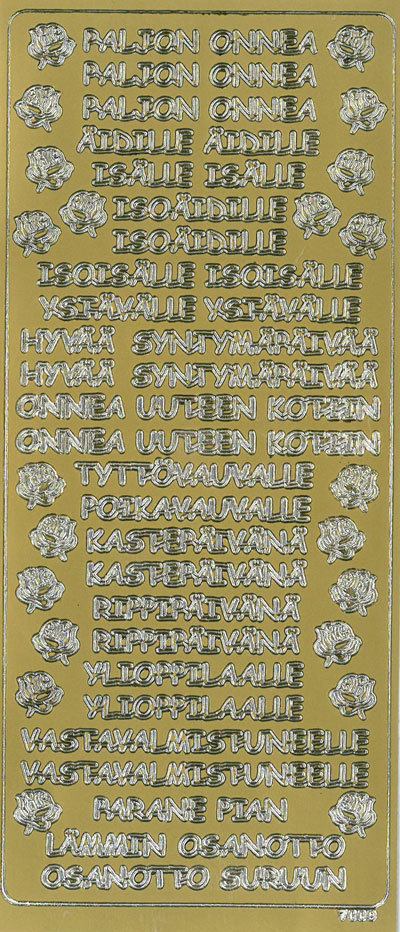 PALJON ONNEA
PALJON ONNEA
PALJON ONNEA
ÄIDILLE ÄIDILLE
ISÄLLE ISÄLLE
ISOÄIDILLE
ISOÄIDILLE
ISOISÄLLE ISOISÄLLE
YSTÄVÄLLE YSTÄVÄLLE
HYVÄÄ SYNTYMÄPÄIVÄÄ
HYVÄÄ SYNTYMÄPÄIVÄÄ
ONNEA UUTEEN KOTIIN
ONNEA UUTEEN KOTIIN
TYTTÖVAUVALLE
POIKAVAUVALLE
KASTEPÄIVÄNÄ
KASTEPÄIVÄNÄ
RIPPIPÄIVÄNÄ
RIPPIPÄIVÄNÄ
YLIOPPILAALLE
YLIOPPILAALLE
VASTAVALMISTUNEELLE
VASTAVALMISTUNEELLE
PARANE PIAN
LÄMMIN OSANOTTO
OSANOTTO SURUUN